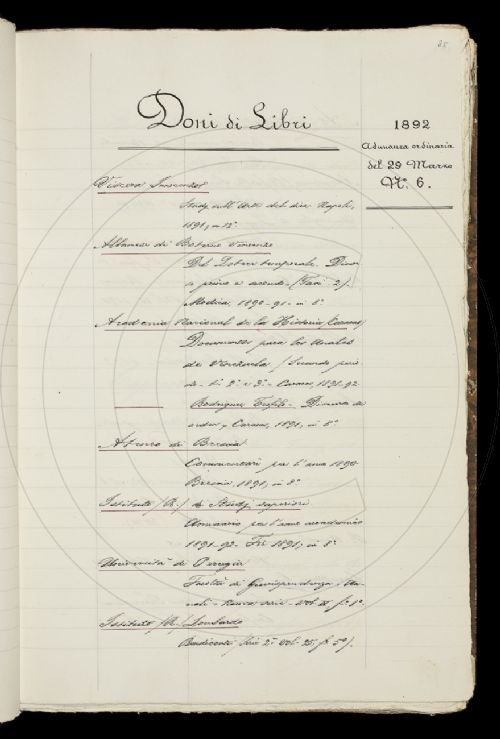 35
Doni di Libri
1892
Adunanza ordinaria
del 29 Marzo
N.º 6.
Vincenzo
Study sull' del dir. Napoli,
1891, in 12º
Albanese di Boterno Vincenzo
Del Potere temporale.
e secondo. (Fasc. 2).
Modica, 1890-91, in 8º
Academia Nacional de la Historia (Caracas)
Documentos para los Anales
de Venezuela (Segundo perio-
do. 1º 2º e 3º. Caracas, 1891-92
Rodriguez Teofilo. Discurso de
orden, Caracas, 1891, in 8º
Ateneo di Brescia
Commentari per l'anno 1890
Brescia, 1891, in 8º
Istituto (R.) di Studj superiori
Annuario per l'anno accademico
1891-92. Fir. 1891, in 8º
Università di Perugia
Facoltà di Giurisprudenza, An-
nali. Nuova serie. Vol. II fº 1º
Istituto (R.) Lombardo
Rendiconti, Serie 2ª Vol. 25, fº 5º).